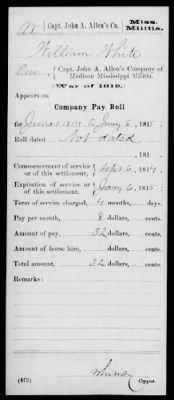 W Capt. John A. Allen's Co. Miss. Militia.
William White
Capt. John A. Allen's Company of
Madison Mississippi Militia.
War of 1812.
Appears on
Company Pay Roll
for to Jany 6, 1815.
Roll dated Not dated
, 181 .
Commencement of service or of this settlement, Sept 6, 1814.
Expiration of service or of this settlement, Jany 6, 1815.
Term of service charged, 4 months, days.
Pay per month, 8 dollars, cents.
Amount of pay, 32 dollars, cents.
Amount of horse hire, dollars, cents.
Total amount, 32 dollars, cents.
Remarks:
(472) Copyist.